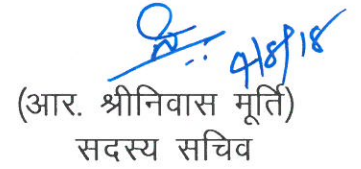 4/8/18
(आर. श्रीनिवास मूर्ति)
सदस्य सचिव